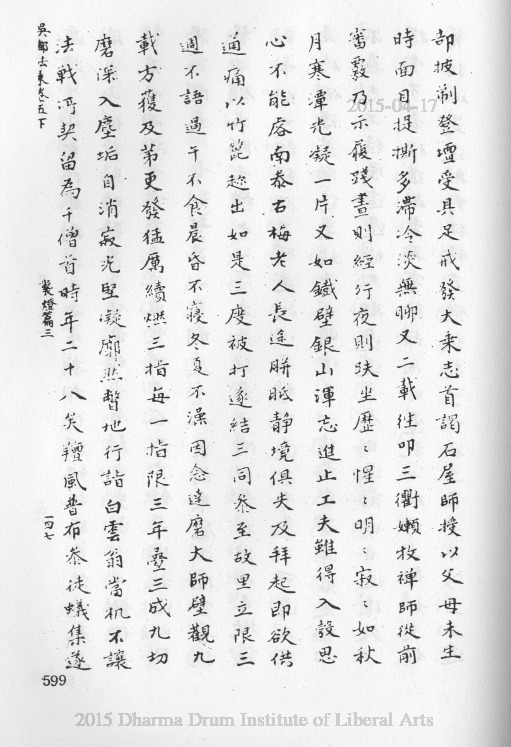 部披剃登壇受具足戒發大乘志首謁石屋師授以父母未生
時面目提撕多滯冷淡無聊又二載徃叩三衢嬾牧禪師從前
審覈乃示履殘晝則經行夜則趺坐歷〻惺〻明〻寂〻如秋
月寒潭光凝一片又如鐵壁銀山渾忘進止工夫雖得入設思
心不能啟南叅古梅老人長途胼胝静境俱失及拜起即欲供
通痛以竹篦趂出如是三度被打遂結三同叅至故里立限三
週不語過午不食晨昏不寢冬夏不澡因念達磨大師壁觀九
載方獲及第更發猛厲續燃三指每一指限三年疊三成九切
磨深入塵垢自消寂光堅凝廓然瞥地行詣白雲翁當机不讓
法戰河契留為千僧首時年二十八矣羶風普布叅徒蟻集遂
吳都法乘卷五下
裝燈篇三
一四七
599
2015-04-17
2015 Dharma Drum Institute of Liberal Arts